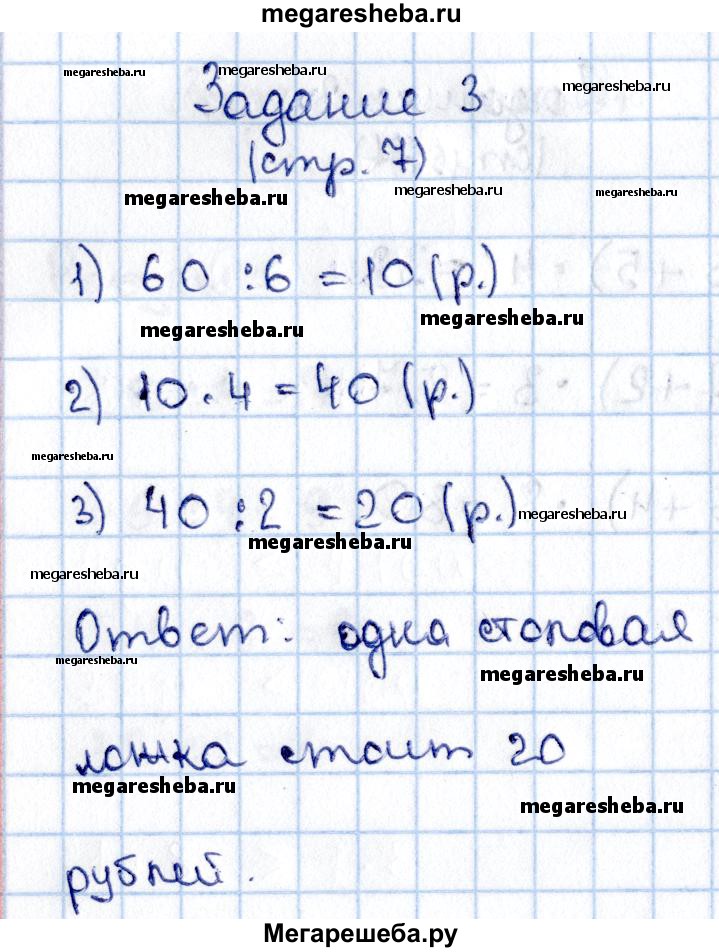 megaresheba.ru
megaresheba.ru megaresheba.ru megaresheba.ru
Задание 3
(стр. 7)
megaresheba.ru megaresheba.ru megaresheba.ru
1) 60 : 6 = 10 (р.)
megaresheba.ru megaresheba.ru
2) 10 · 4 = 40 (р.)
megaresheba.ru
3) 40 : 2 = 20 (р.) megaresheba.ru
megaresheba.ru
megaresheba.ru
Ответ: одна столовая
megaresheba.ru megaresheba.ru
ложка стоит 20
megaresheba.ru megaresheba.ru
рублей.
Мегарешеба.ру